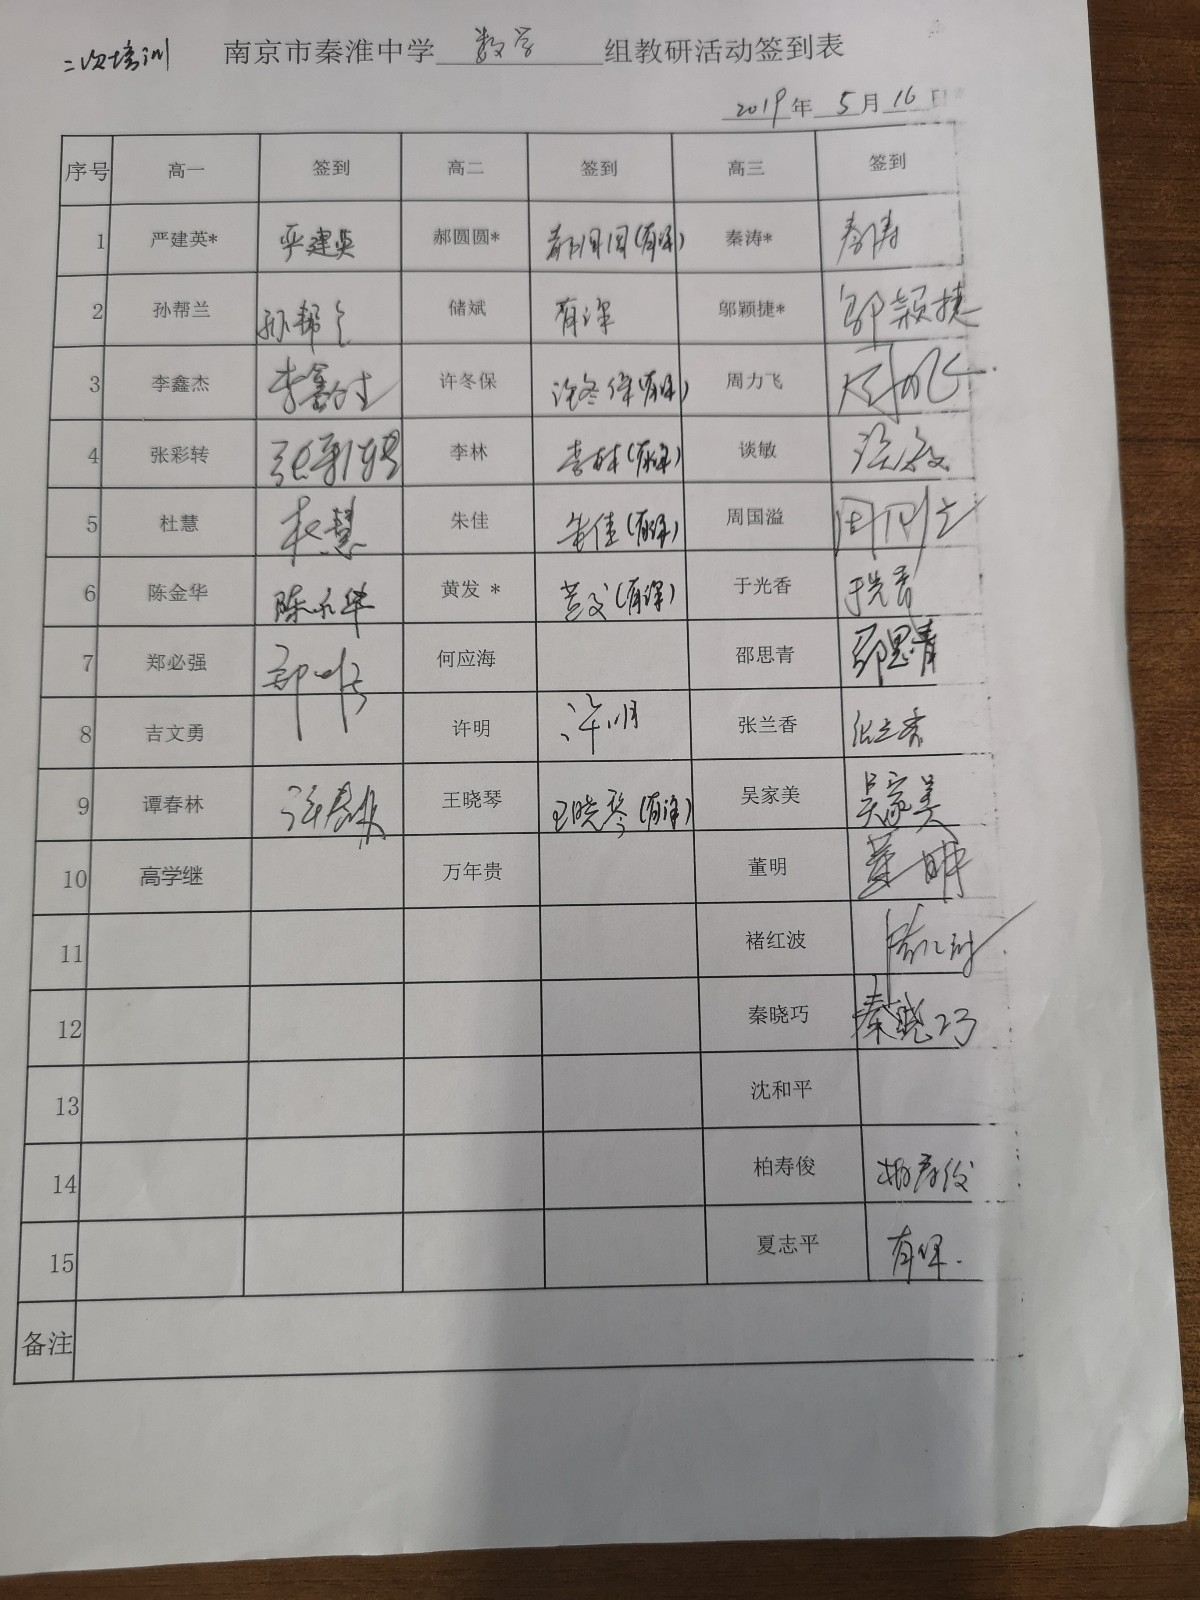 二次培训 南京市秦淮中学 数学 组教研活动签到表
2019年 5月 16日
序号 高一 签到 高二 签到 高三 签到
1 严建英* 严建英 郝圆圆* 郝圆圆(有课) 秦涛* 秦涛
2 孙帮兰 孙帮兰 储斌 有课 邬颖捷* 邬颖捷
3 李鑫杰 李鑫杰 许冬保 许冬保(有课) 周力飞 周力飞
4 张彩转 张彩转 李林 李林(有课) 谈敏 谈敏
5 杜慧 杜慧 朱佳 朱佳(有课) 周国溢
6 陈金华 陈金华 黄发 * 黄发(有课) 于光香 于光香
7 郑必强 郑必强 何应海 邵思青 邵思青
8 吉文勇 许明 许明 张兰香 张兰香
9 谭春林 谭春林 王晓琴 王晓琴(有课) 吴家美 吴家美
10 高学继 万年贵 董明 董明
11 褚红波
12 秦晓巧 秦晓巧
13 沈和平
14 柏寿俊 柏寿俊
15 夏志平 有课.
备注